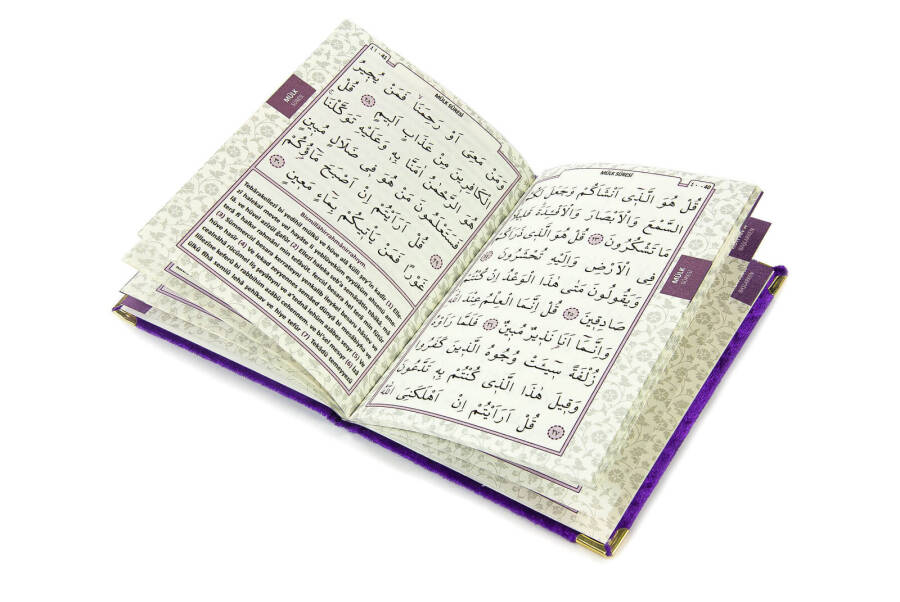 MÜLK SÛRESİ
40
قُلْ هُوَ الَّذٖٓي اَنْشَاَكُمْ وَجَعَلَ
السَّمْعَ وَالْاَبْصَارَ وَالْاَفْـِٔدَةَ قَلٖيلاً
مَا تَشْكُرُونَ ﴿٢٣﴾ قُلْ هُوَ الَّذٖي ذَرَاَكُمْ
فِي الْاَرْضِ وَاِلَيْهِ تُحْشَرُونَ
وَيَقُولُونَ مَتٰى هٰذَا الْوَعْدُ اِنْ كُنْتُمْ
صَادِقٖينَ ﴿٢٥﴾ قُلْ اِنَّمَا الْعِلْمُ عِنْدَ اللّٰهِ
وَاِنَّمَٓا اَنَا نَذٖيرٌ مُبٖينٌ ﴿٢٦﴾ فَلَمَّا رَاَوْهُ
زُلْفَةً سٖٓيـَٔتْ وُجُوهُ الَّذٖينَ كَفَرُوا
وَقٖيلَ هٰذَا الَّذٖي كُنْتُمْ بِهٖ تَدَّعُونَ
﴿٢٧﴾ قُلْ اَرَاَيْتُمْ اِنْ اَهْلَكَنِيَ اللّٰهُ
MÜLK
SÛRESİ
MÜLK SÛRESİ
٤١ - 41
وَمَنْ مَعِيَ اَوْ رَحِمَنَا فَمَنْ يُجٖيرُ
الْكَافِرٖينَ مِنْ عَذَابٍ اَلٖيمٍ ﴿٢٨﴾ قُلْ
هُوَ الرَّحْمٰنُ اٰمَنَّا بِهٖ وَعَلَيْهِ تَوَكَّلْنَا
فَسَتَعْلَمُونَ مَنْ هُوَ فٖي ضَلَالٍ مُبٖينٍ
﴿٢٩﴾ قُلْ اَرَاَيْتُمْ اِنْ اَصْبَحَ مَٓاؤُ۬كُمْ
غَوْرًا فَمَنْ يَاْتٖيكُمْ بِمَٓاءٍ مَعٖينٍ ﴿٣٠﴾
MÜLK
SÛRESİ
Bismillahirrahmânirrahıym.
Tebârakellezî bi yedihil mülkü ve hüve alâ külli şey'in kadîr (1) Elle-
zî halekal mevte vel hayâte li yeblüveküm eyyüküm ahsenü ame-
lâ, ve hüvel azîzül ğafûr (2) Ellezî haleka seb'a semâvâtin tıbâkâ, mâ
terâ fî halkır rahmâni min tefâvüt, ferciil besara hel terâ min fütûr
(3) Sümmerciil besara kerrateyni yenkalib ileykel besaru hâsiev ve
hüve hasîr (4) Ve lekad zeyyennes semâed dünyâ bi mesâbîyha ve
cealnâhâ rücûmel liş şeyâtıyni ve a'tednâ lehüm azâbes seıyr (5) Ve
lillezîne keferû bi rabbihim azâbü cehennem, ve bi'sel masıyr (6) İzâ
ülkû fîhâ semiû lehâ şehîkav ve hiye tefûr (7) Tekâdü temeyyezü